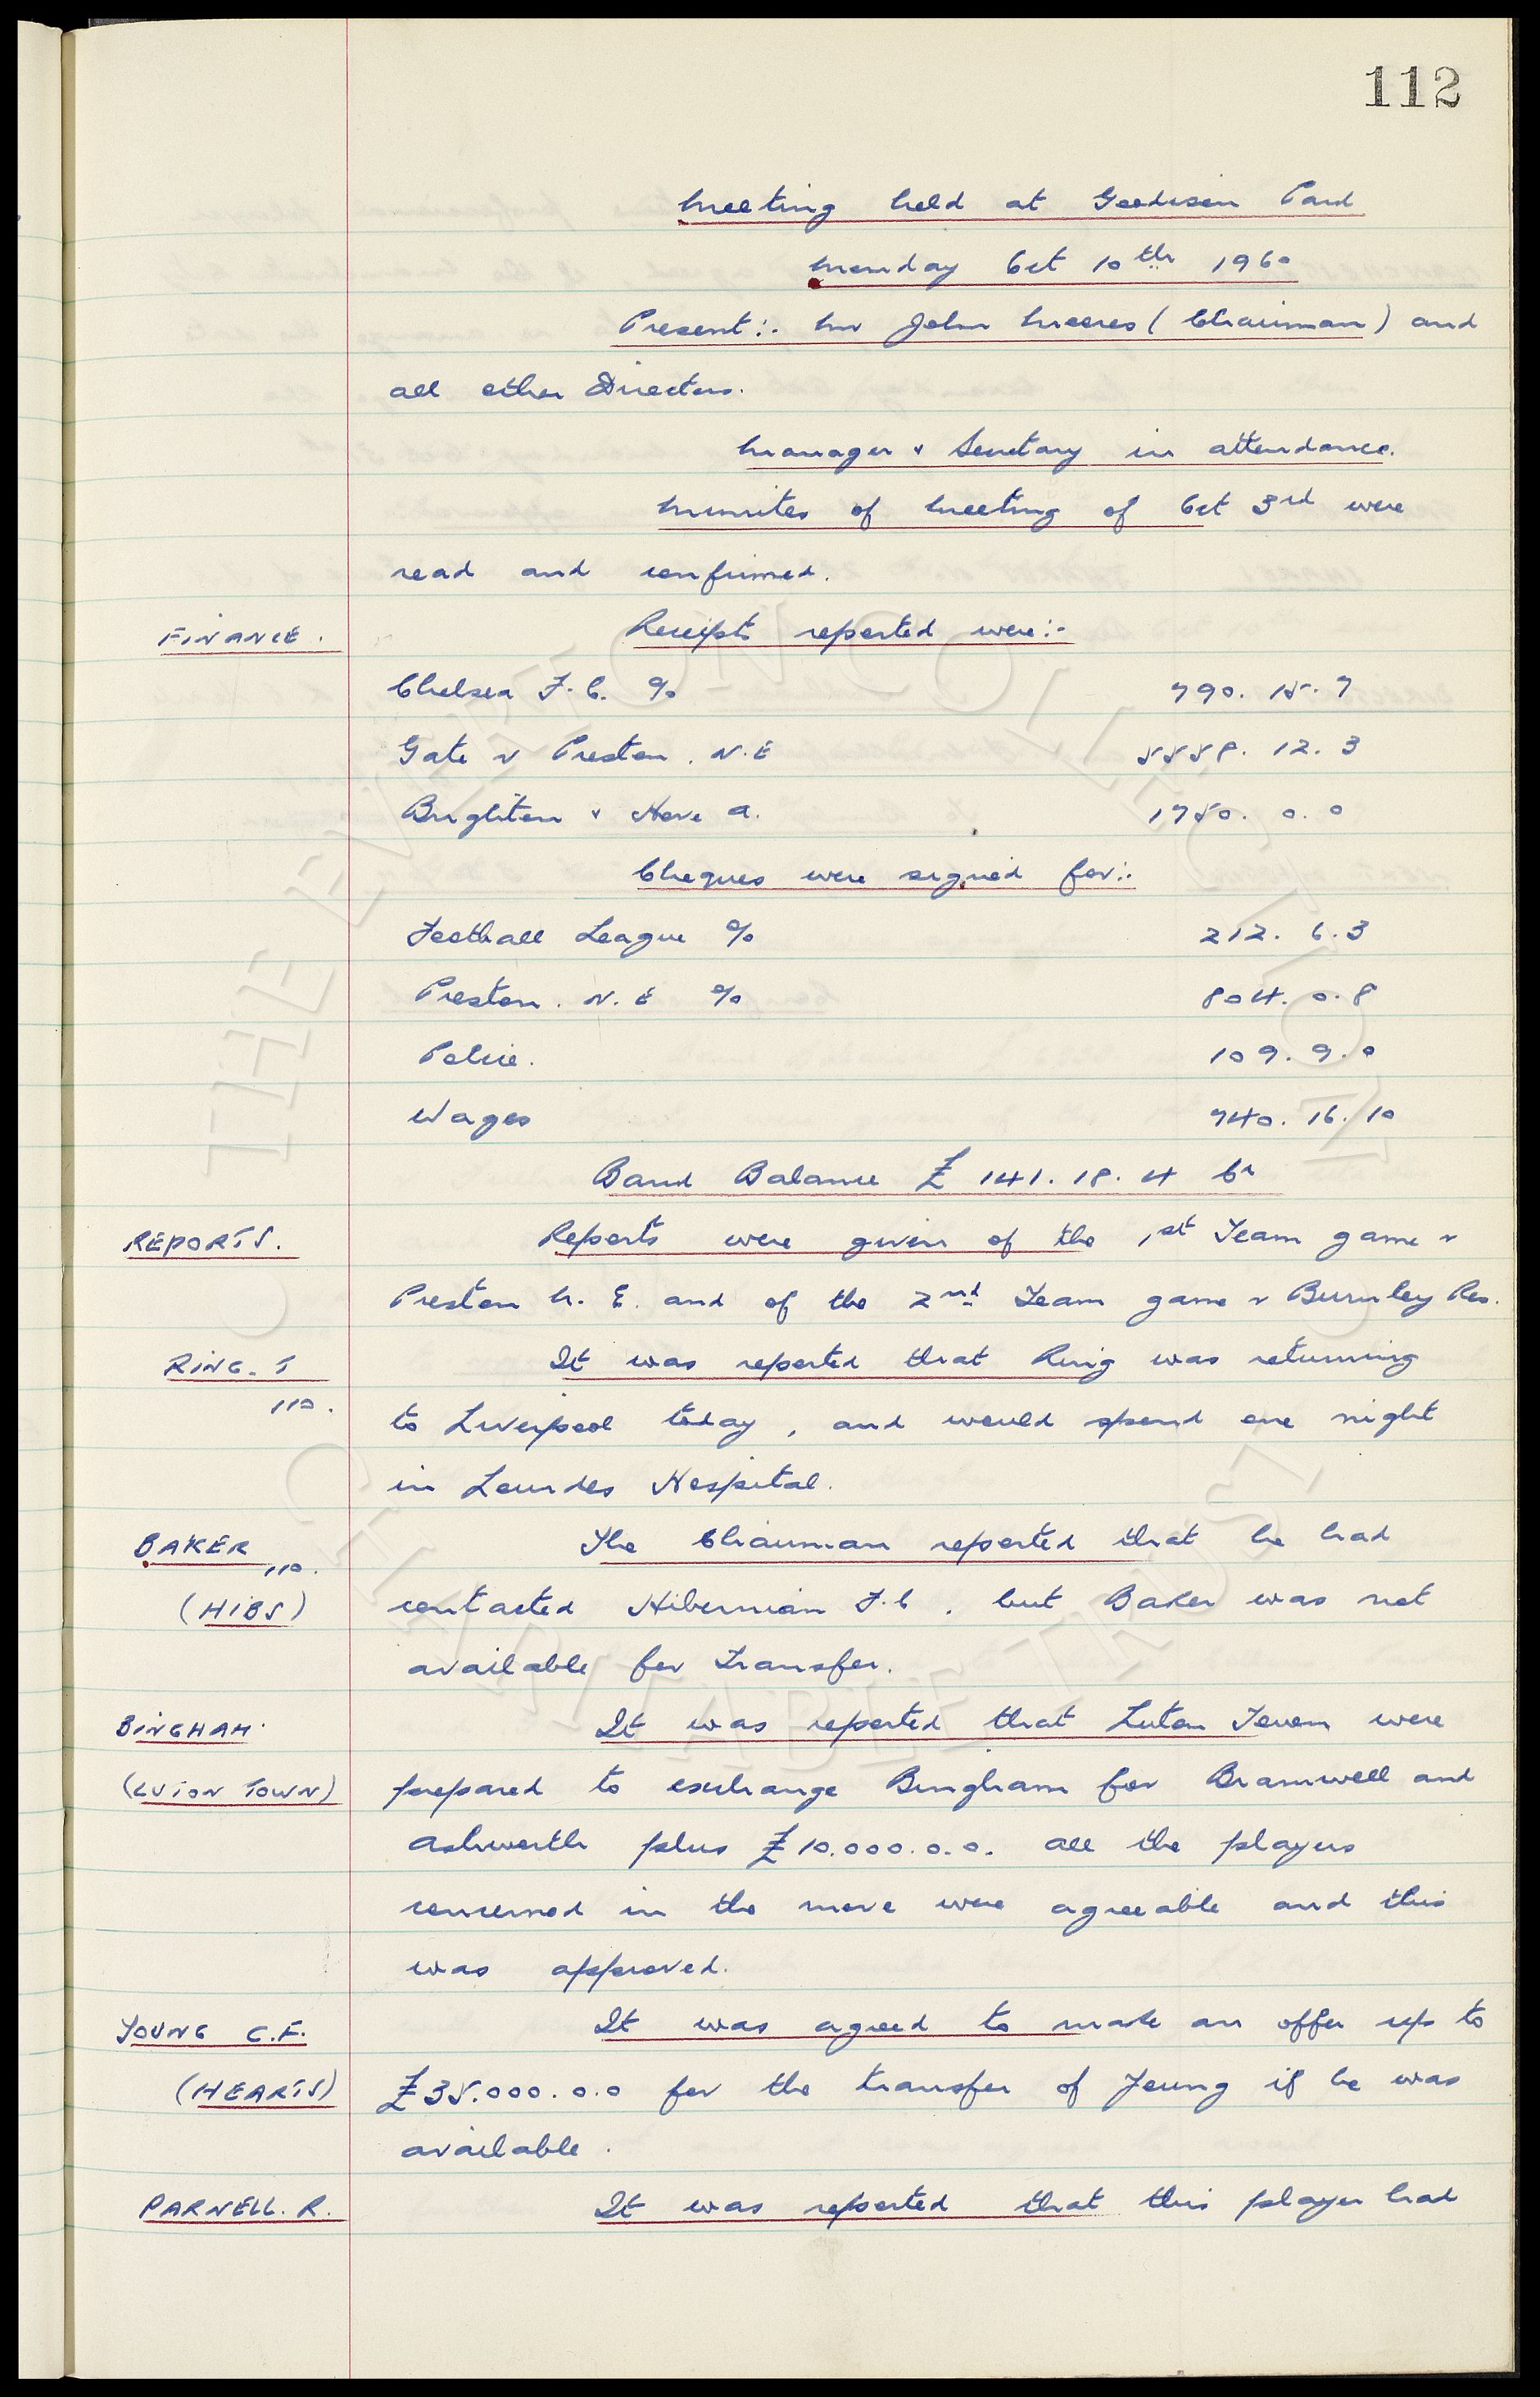 112
Meeting held at Goodison Park
Monday Oct 10th 1960
Present:- Mr John Moores (Chairman) and
all other Directors.
Manager & Secretary in attendance.
Minutes of Meeting of Oct 3rd were
read and confirmed.
FINANCE. Receipts reported were:-
Chelsea F.C. % 790. 15. 7
Gate v Preston. N.E 5558. 12. 3
Brighton & Hove A. 1750. 0. 0
Cheques were signed for:-
Football League % 212. 6. 3
Preston. N. E % 804. 0. 8
Police. 109. 9. 0
Wages 740. 16. 10
Bank Balance £ 141. 18. 4 Cr
REPORTS. Reports were given of the 1st Team game v
Preston N. E. and of the 2nd Team game v Burnley Res.
RING. T It was reported that Ring was returning
110. to Liverpool today, and would spend one night
in Lourdes Hospital.
BAKER 110. The Chairman reported that he had
(HIBS) contacted Hibernian F.C. but Baker was not
available for Transfer.
BINGHAM. It was reported that Luton Town were
(LUTON TOWN) prepared to exchange Bingham for Bramwell and
Ashworth plus £10.000.0.0. all the players
concerned in the move were agreeable and this
was approved.
YOUNG C.F. It was agreed to make an offer up to
(HEARTS) £35.000.0.0 for the transfer of Young if he was
available.
PARNELL. R. It was reported that this player had
THE EVERTON COLLECTION
CHARITABLE TRUST